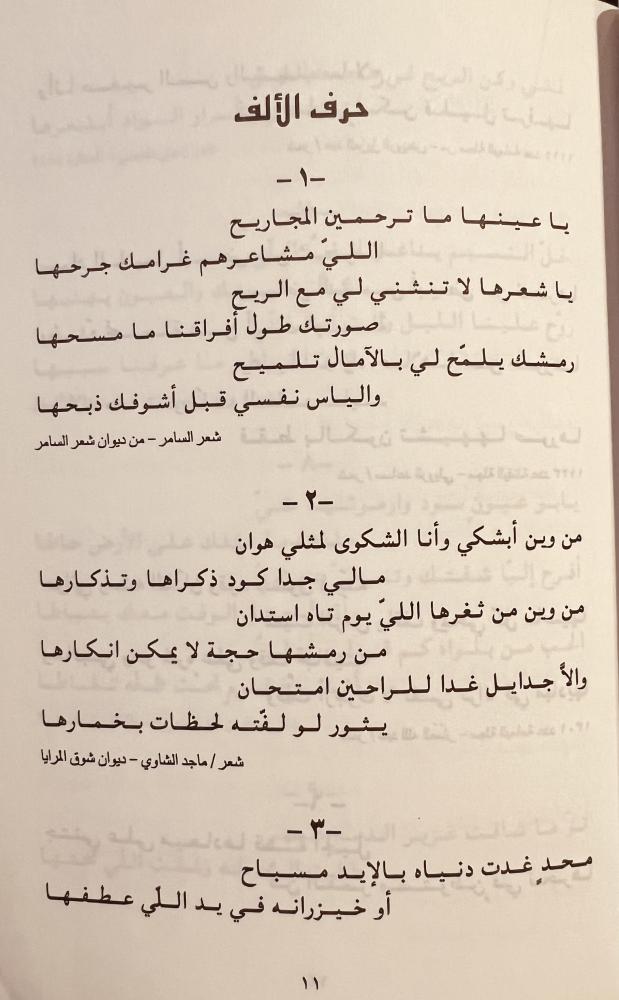 حرف الألف
–١–
يا عينها ما ترحمين المجاريح
الليّ مشاعرهم غرامك جرحها
يا شعرها لا تنثني لي مع الريح
صورتك طول أفراقنا ما مسحها
رمشك يلمّح لي بالآمال تلميح
والياس نفسي قبل أشوفك ذبحها
شعر السامر – من ديوان شعر السامر
–٢–
من وين أبشكي وأنا الشكوى لمثلي هوان
مالي جدا كود ذكراها وتذكارها
من وين من ثغرها الليّ يوم تاه استدان
من رمشها حجة لا يمكن انكارها
والأ جدايل غدا للراحين امتحان
يثور لو لفّته لحظات بخمارها
شعر / ماجد الشاوي – ديوان شوق المرايا
–٣–
محدٍ غدت دنياه بالإيد مسباح
أو خيزرانه في يد اللّي عطفها
١١